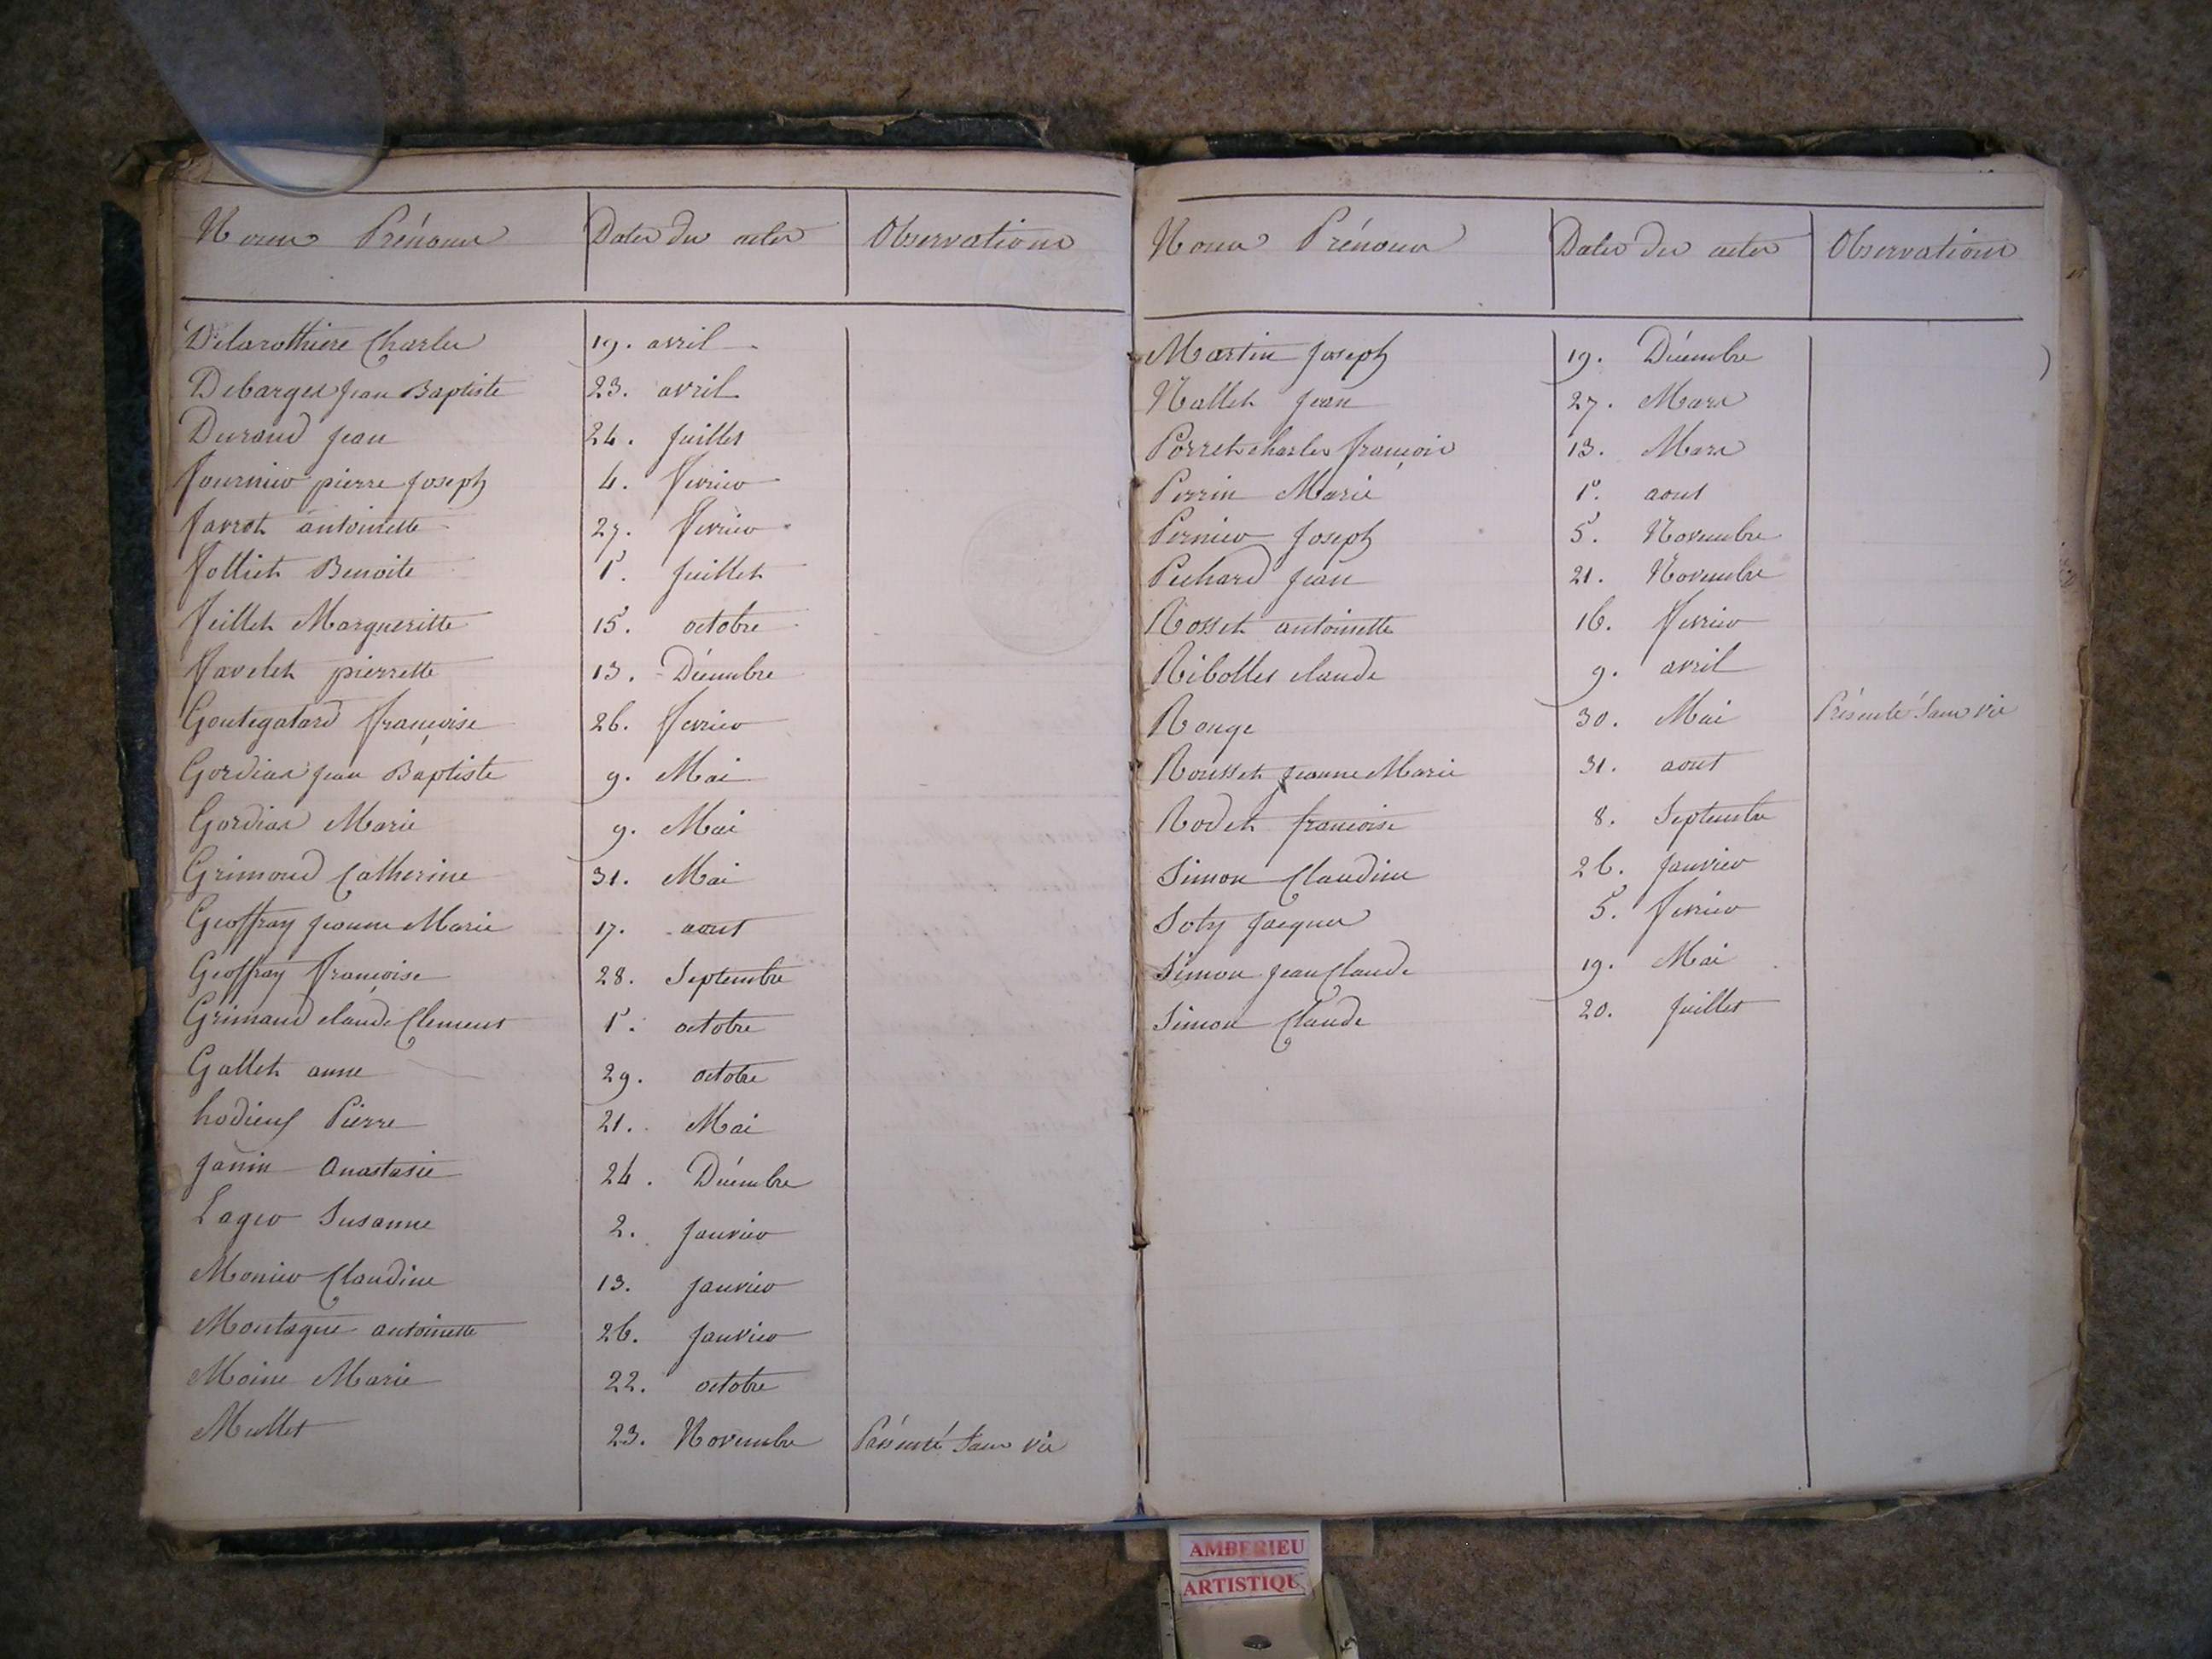 Noms Prénoms Dates des actes Observations
Delarothiere Charles 19. avril
Debarges Jean Baptiste 23. avril
Durand Jean 24. Juillet
Fournier pierre Joseph 4. Fevrier
Favrot antoinette 27. Fevrier
Folliet Benoite 1er. Juillet
Feillet Margueritte 15. octobre
Favelet pierrette 13. Décembre
Goutegatard françoise 26. Fevrier
Gordias Jean Baptiste 9. Mai
Gordias Marie 9. Mai
Grimoud Catherine 31. Mai
Geoffray Jeanne Marie 17. aout
Geoffray françoise 28. Septembre
Grimaud claude Clement 1er. octobre
Gallet anne 29. octobre
Pierre 21. Mai
Janin Anastasie 24. Décembre
Lager Susanne 2. Janvier
Monier Claudine 13. Janvier
Montagne antoinette 26. Janvier
Moine Marie 22. octobre
Mullet 23. Novembre Présenté Sans vie
Noms Prénoms Dates des actes Observations
Martin Joseph 19. Décembre
Nallet Jean 27. Mars
Porret charles françois 13. Mars
Perrin Marie 1er. aout
Pernier Joseph 5. Novembre
Pechard Jean 21. Novembre
Rosset antoinette 16. Fevrier
Ribollet claude 9. avril
Ronge 30. Mai Présenté Sans vie
Rousset Jeanne Marie 31. aout
Rodet françoise 8. Septembre
Simon Claudine 26. Janvier
Soty Jacques 5. fevrier
Simon Jean Claude 19. Mai
Simon Claude 20. Juillet
AMBERIEU
ARTISTIQU